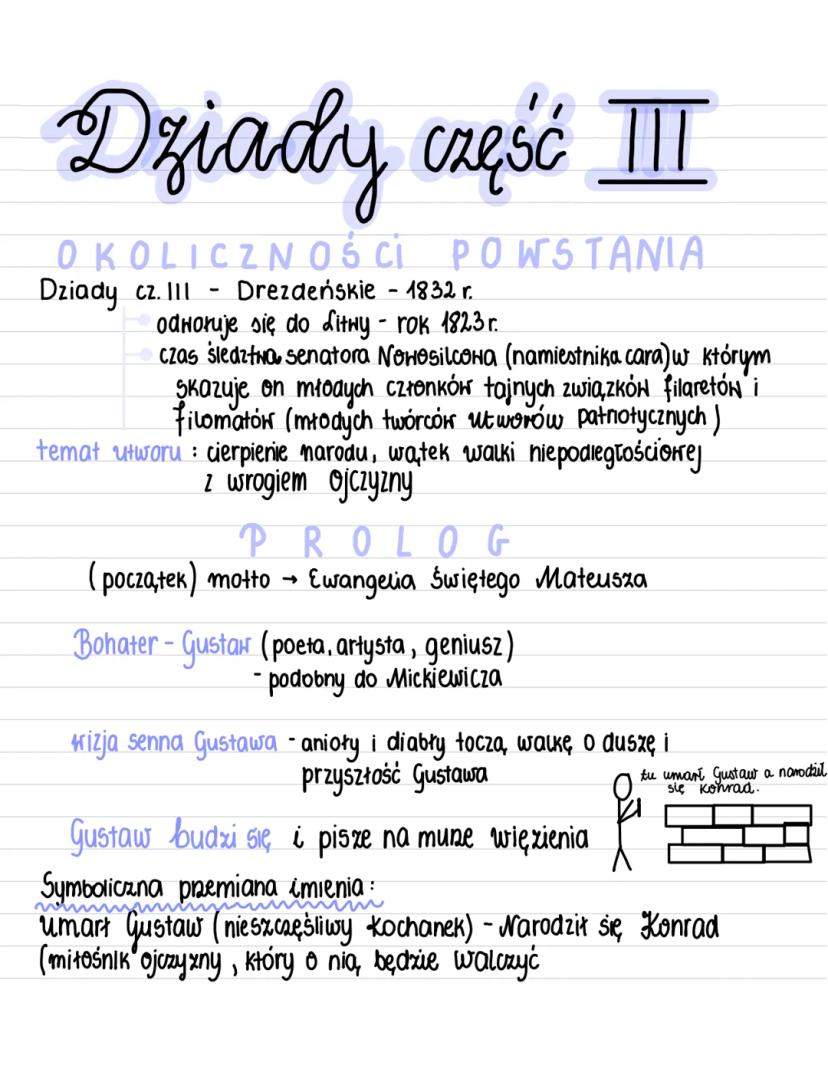 Dziady część III
OKOLICZNOŚCI POWSTANIA
Dziady cz. III - Drezdeńskie - 1832 r.
odwołuje się do Litwy - rok 1823 r.
czas śledztwa senatora Nowosilcowa (namiestnika cara) w którym
skazuje on młodych członków tajnych związków filaretów i
filomatów (młodych twórców utworów patriotycznych)
temat utworu : cierpienie narodu, wątek walki niepodległościowej
z wrogiem ojczyzny
PROLOG
(początek) motto → Ewangelia Świętego Mateusza
Bohater - Gustaw (poeta, artysta, geniusz)
- podobny do Mickiewicza
wizja senna Gustawa - anioły i diabły toczą walkę o duszę i
przyszłość Gustawa
tu umarł Gustaw a narodził
się Konrad.
Gustaw budzi się i pisze na murze więzienia
Symboliczna przemiana imienia :
Umarł Gustaw (nieszczęśliwy kochanek) - Narodził się Konrad
(miłośnik ojczyzny, który o nią będzie walczyć